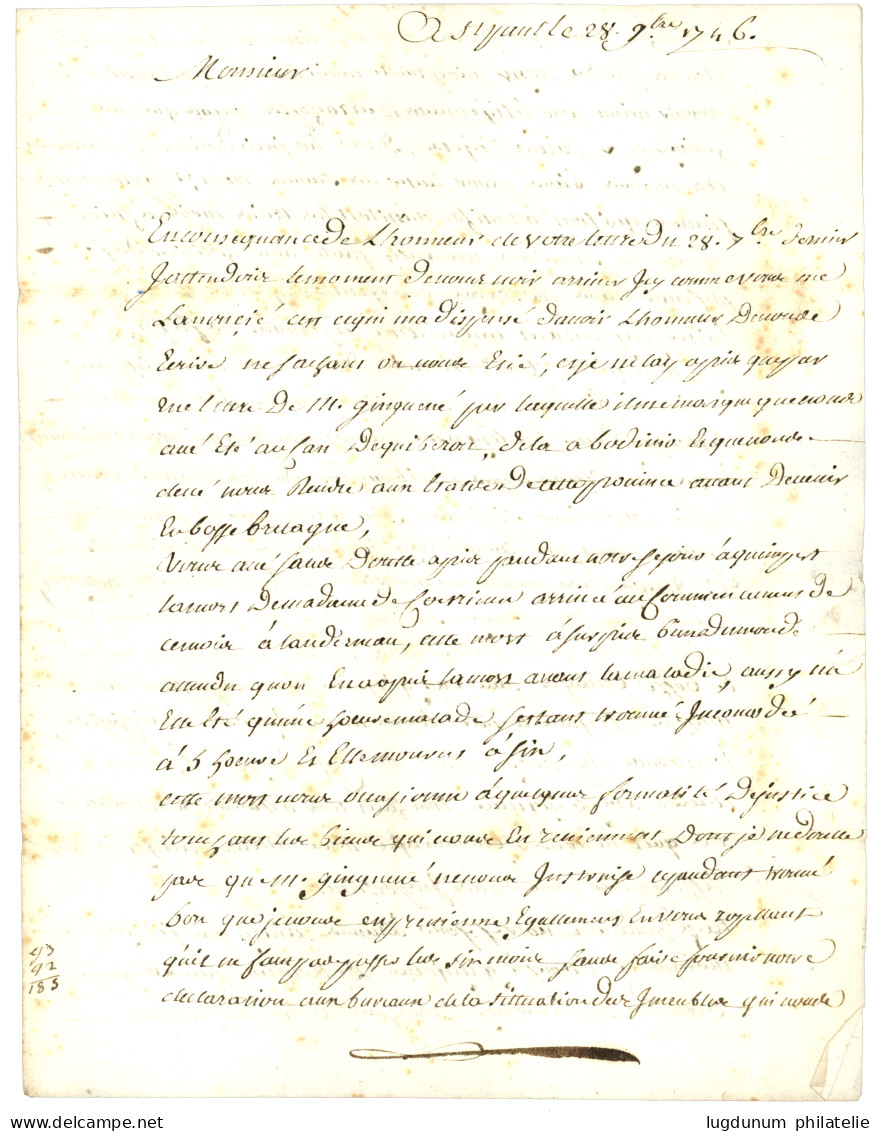 A St pault le 28. 9bre 1746.
Monsieur
En consequance de Lhonneur de votre lettre du 28. 7bre dernier
Jattendois le moment de vous voir arriver Icy comme vous me
Lanoncié cest ce qui ma dispensé davoir Lhonneur de vous
Ecrire ne sachant ou vous Etié, et je nelay apris que par
une lettre De M. Ginguené par laquelle il me marque que vous
avé Eté au Can De quiberon, de la a bodinio Et que vous
devé vous Rendre aux Etats De cette province avant De venir
En basse bretagne,
Vous avé sans Doutte apris pandant votre sejour à quimper
la mort De madame de arrivé au Commencement de
ce mois à landerneau, cette mort à surpris bien du monde
attendu quon En a apris la mort avant la maladie, aussy na
Elle Eté quune heure malade sestant trouvé Incomodé
à 5 heure Et Elle mourut à six,
cette mort vous occasionne à quelques formalité De justice
touchant les biens qui vous En reviennent Dont je ne doutte
pas que M. ginguené ne vous Instruise cepandant trouvé
bon que je vous en previenne Egallement En vous
quil ne faut pas passer les six mois sans faire fournir votre
declaration aux bureaux de la sittuation des Imeubles qui vous
93
92
185
lugdunum philatelie